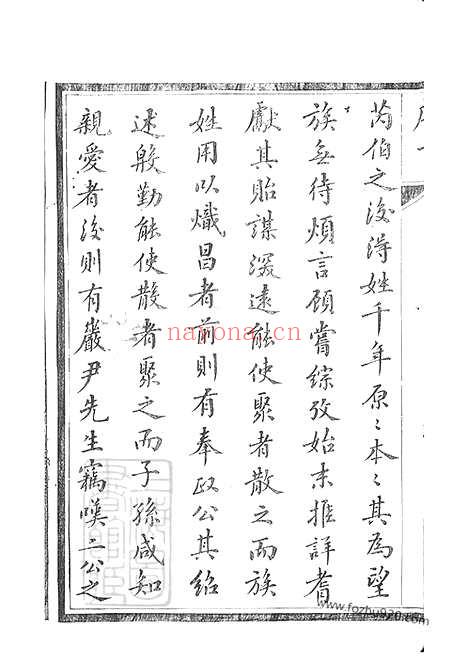 芮伯之後得姓千年原〻本〻其為望
族無待煩言顧嘗綜攷始末推詳耆
獻其貽謀深遠能使聚者散之而族
姓用以熾昌者前則有奉政公其紹
述殷勤能使散者聚之而子孫咸知
親愛者後則有巖尹先生竊嘆二公之
nayona.cn
www.fozhu920.com